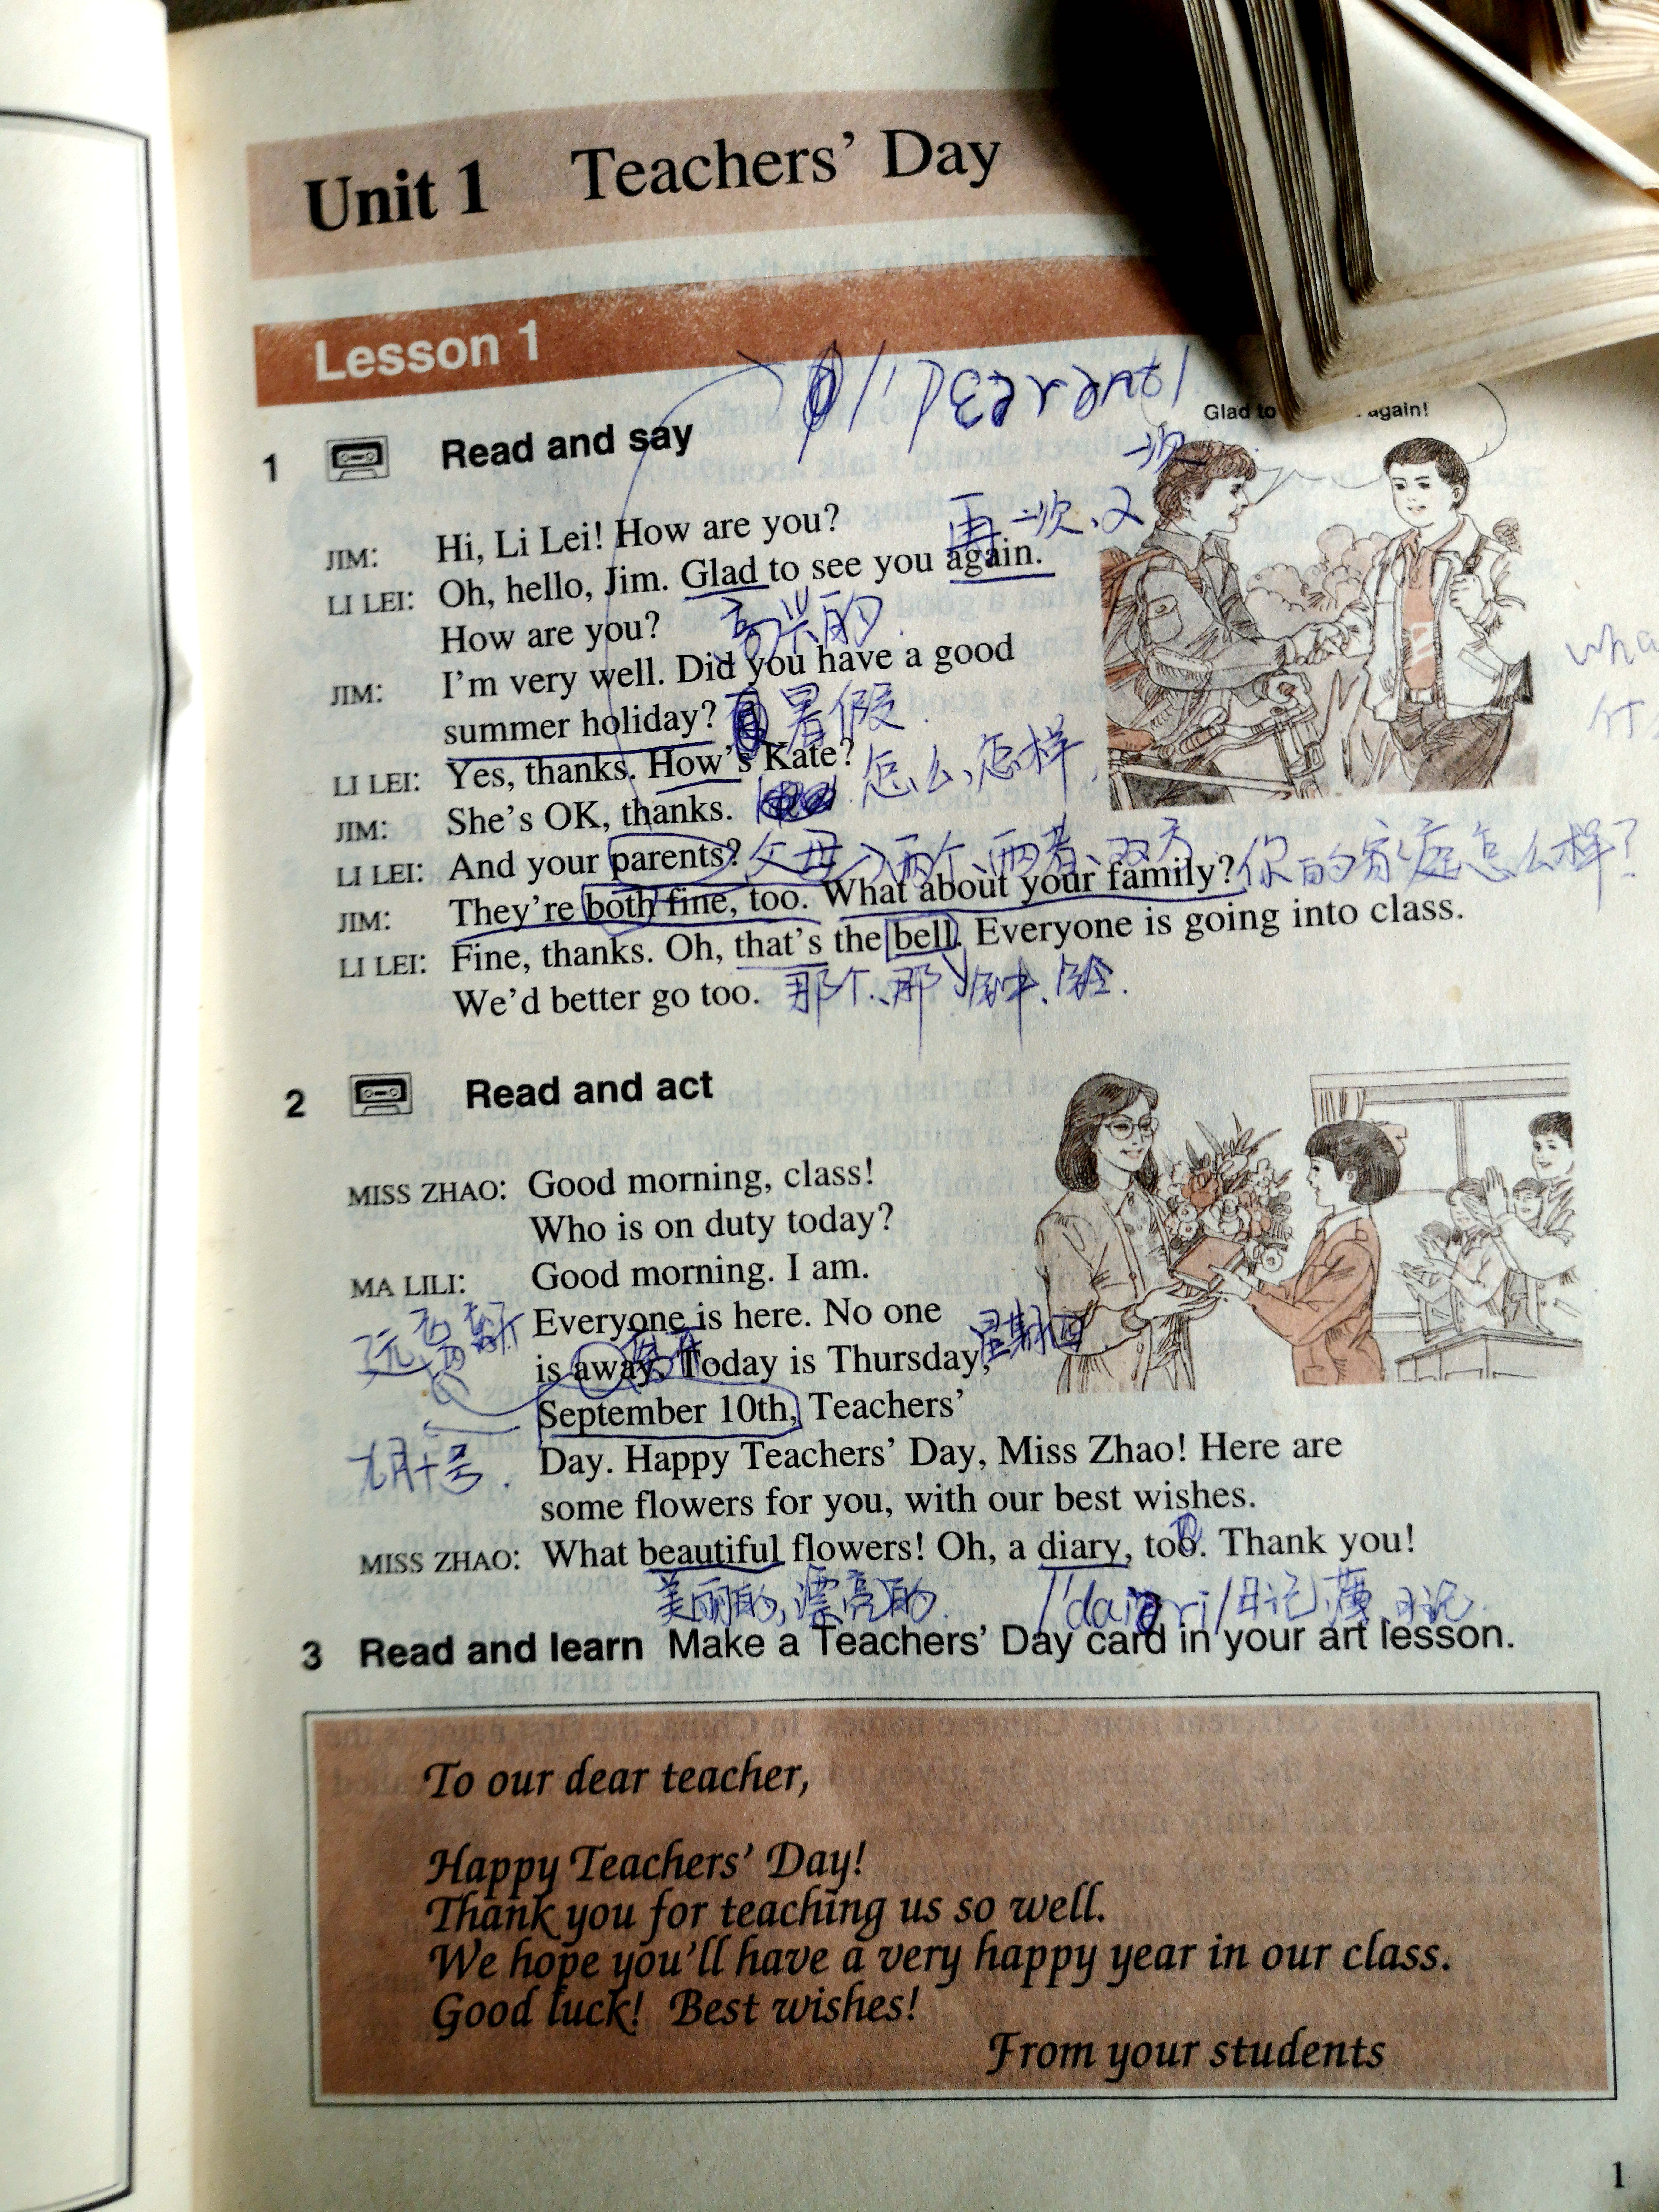 Unit 1 Teachers' Day
Lesson 1
/'peərənt/
1 Read and say
Glad to again!
一次
再一次、又
JIM: Hi, Li Lei! How are you?
LI LEI: Oh, hello, Jim. Glad to see you again.
How are you? 高兴的.
JIM: I'm very well. Did you have a good
summer holiday? 暑假.
LI LEI: Yes, thanks. How's Kate? 怎么,怎样
JIM: She's OK, thanks.
LI LEI: And your parents? 父母 两个、两者、双方
JIM: They're both fine, too. What about your family? 你的家庭怎么样?
LI LEI: Fine, thanks. Oh, that's the bell. Everyone is going into class.
We'd better go too. 那个、那 钟、铃.
2 Read and act
MISS ZHAO: Good morning, class!
Who is on duty today?
MA LILI: Good morning. I am.
Everyone is here. No one
is away. Today is Thursday, 星期四
September 10th, Teachers'
九月十号.
Day. Happy Teachers' Day, Miss Zhao! Here are
some flowers for you, with our best wishes.
MISS ZHAO: What beautiful flowers! Oh, a diary, too. Thank you!
美丽的,漂亮的. /'daiəri/日记薄、日记.
3 Read and learn Make a Teachers' Day card in your art lesson.
To our dear teacher,
Happy Teachers' Day!
Thank you for teaching us so well.
We hope you'll have a very happy year in our class.
Good luck! Best wishes!
From your students
1